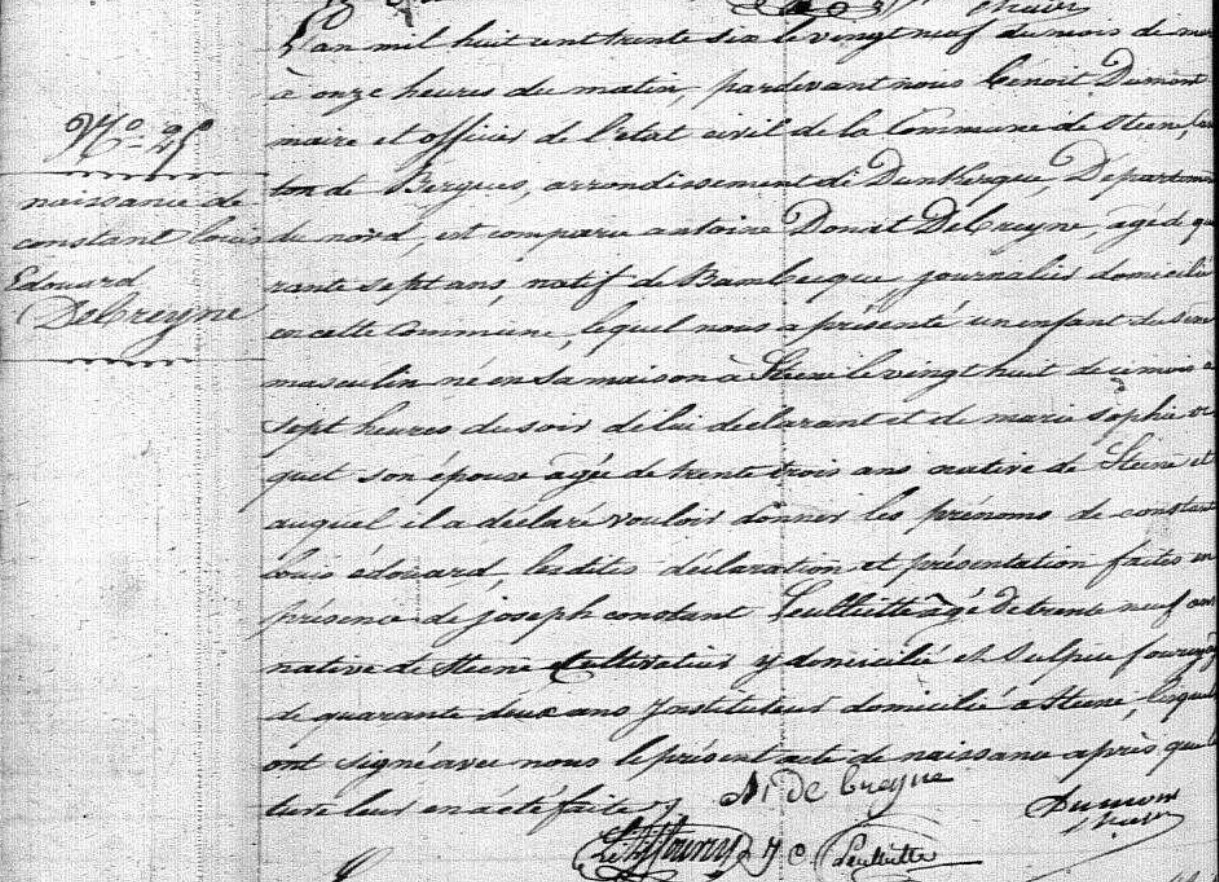 N.o 25
naissance de
constant louis
Edouard
DeCreyne
L'an mil huit cent trente six le vingt neuf du mois de
à onze heures du matin, pardevant nous Benoit Dumont
maire et officier de l'etat civil de la Commune de Steene, can
ton de Bergues, arrondissement de Dunkerque, Departem
du nord, est comparu antoine Donat DeCreyne, agé de qua
rante sept ans, natif de Bambecque journalier domicilié
en cette Commune, lequel nous a présenté un enfant du sexe
masculin né en sa maison à Steene le vingt huit de ce mois a
sept heures du soir de lui declarant et de marie sophie
quet son épouse agée de trente trois ans native de Steene et
auquel il a déclaré vouloir donner les prénoms de constant
louis édouard, lesdites déclaration et présentation faites en
présence de joseph constant Leullietteâgé de trente neuf ans
native de Steene Cultivateur y domicilié et Sulpice
de quarante deux ans Instituteur domicilié à Steene, lesquels
ont signé avec nous le présent acte de naissance après que
ture leur en a été faite
De Creyne
Dumont
maire
J C Leulliette